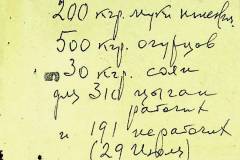 200 кгр. муки пшенич.
500 кгр. огурцов
30 кгр. соли
для 310 цыган
рабочих
и 191 нерабочих
(29 Июля)